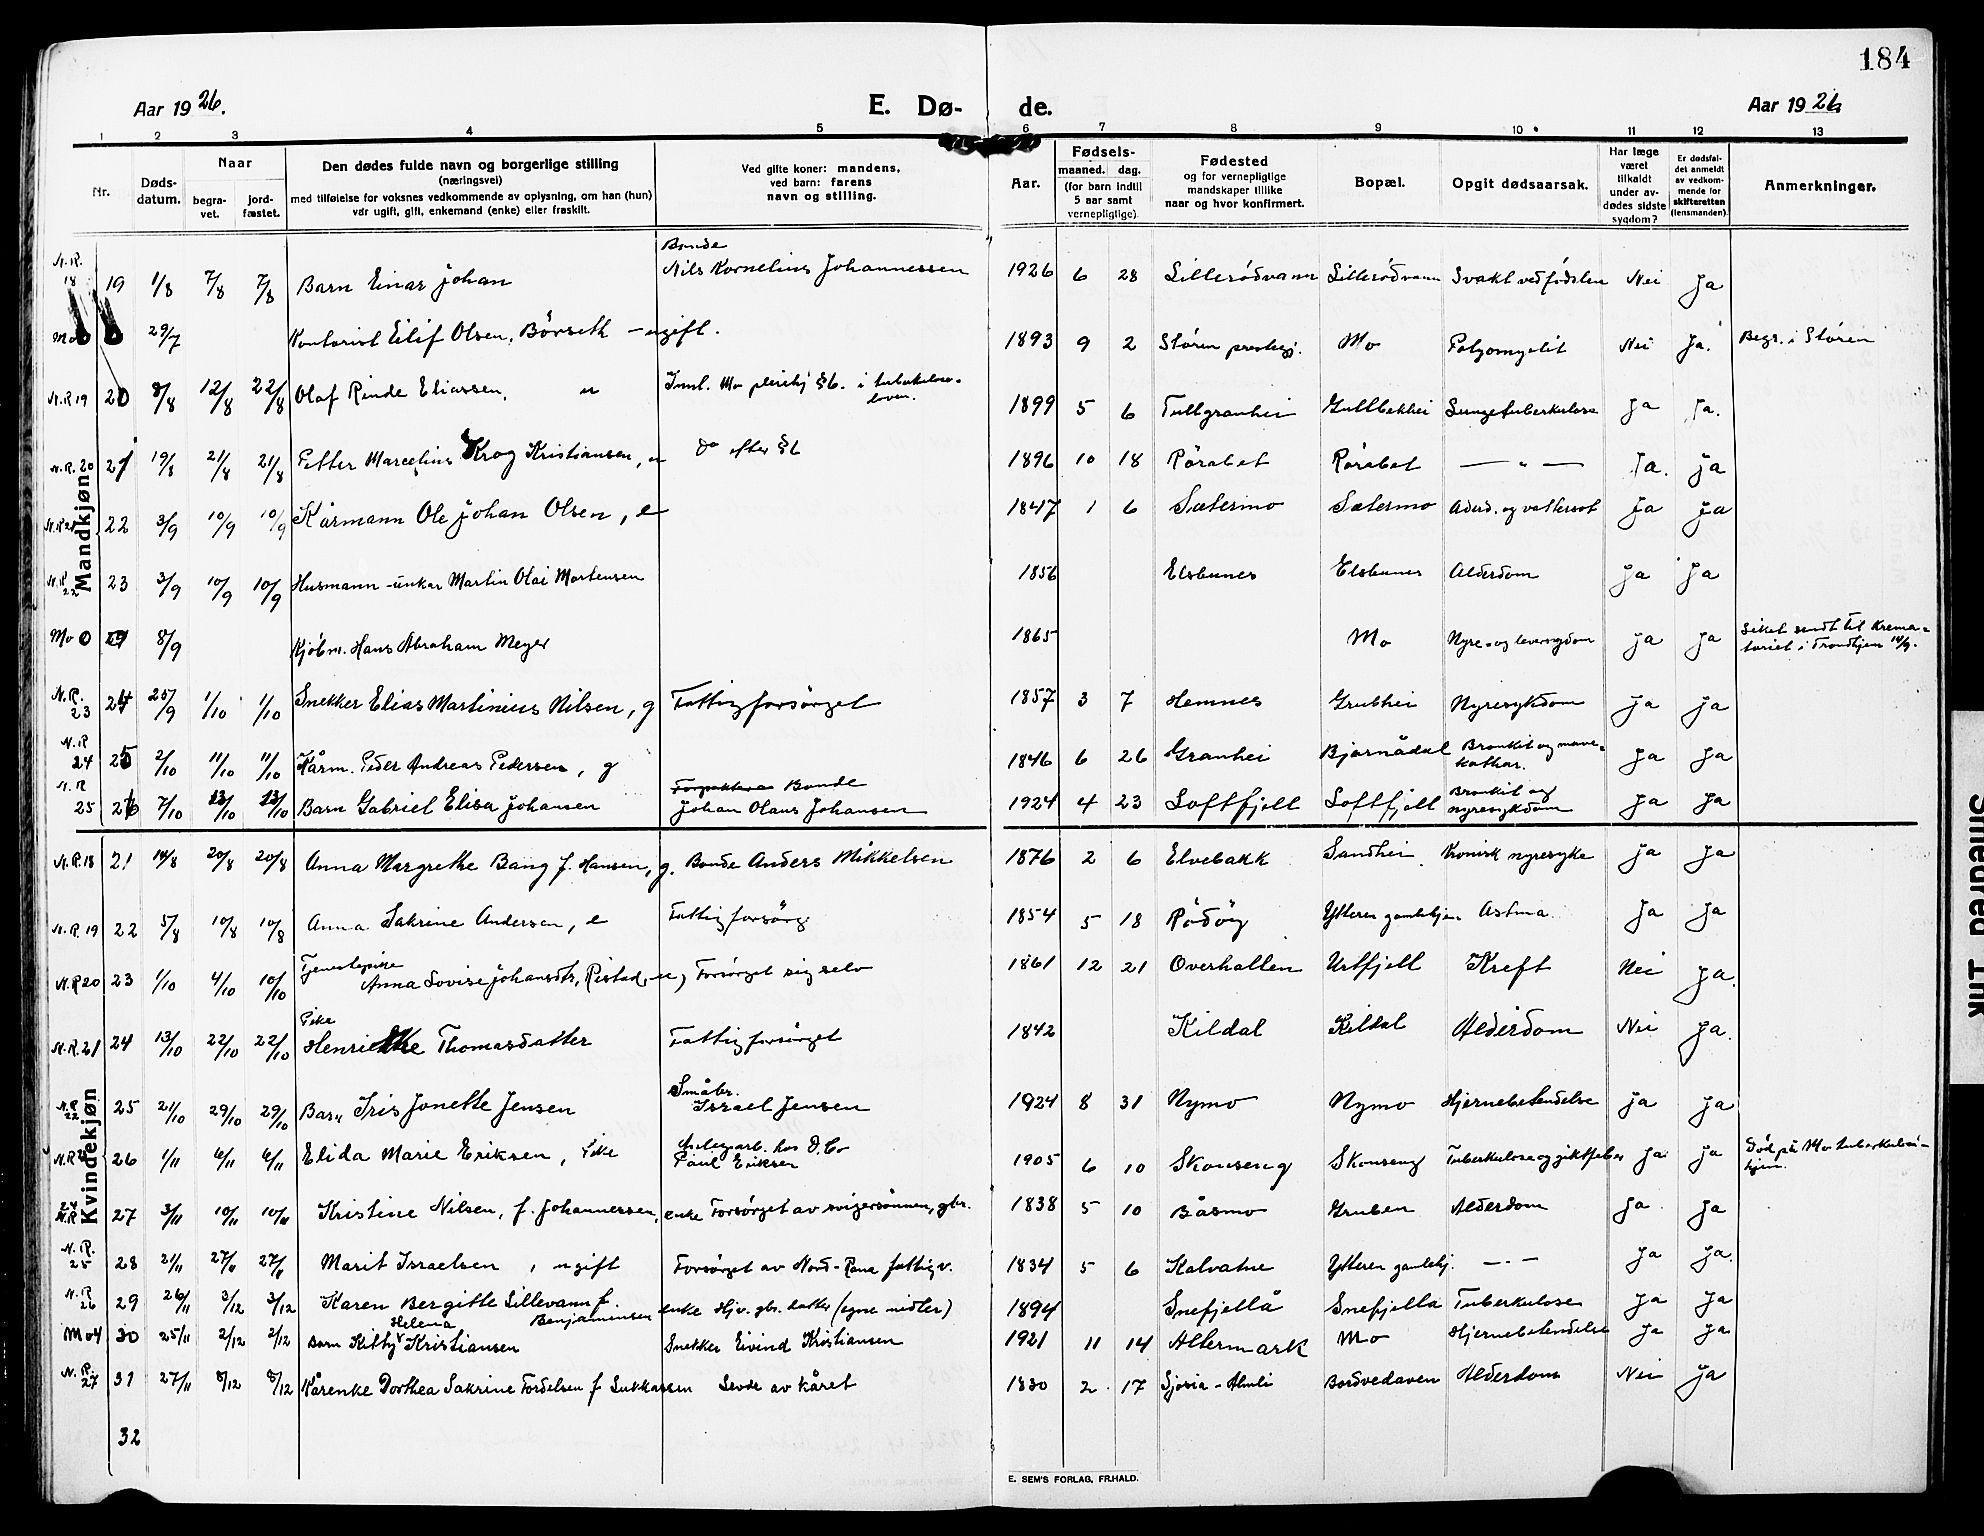 184
Aar 1926. E. Dø- de. Aar 1926
1 2 3 4 5 6 7 8 9 10 11 12 13
Nr. Døds-datum. Naar begra-vet. jord-fæstet. Den dødes fulde navn og borgerlige stilling (næringsvei) med tilføielse for voksnes vedkommende av oplysning, om han (hun) var ugift, gift, enkemand (enke) eller fraskilt. Ved gifte koner: mandens, ved barn: farens navn og stilling. Aar. Fødsels- maaned. dag. (for barn indtil 5 aar samt vernepligtige) Fødested og for vernepligtige mandskaper tillike naar og hvor konfirmert. Bopæl. Opgit dødsaarsak. Har læge været tilkaldt under av-dødes sidste sygdom? Er dødsfal-det anmeldt av vedkom-mende for skifteretten (lensmanden). Anmerkninger.
Mandkjøn
N.R. 18 19 1/8 7/8 7/8 Barn Einar Johan Bonde Nils Kornelius Johannessen 1926 6 28 Lillerødvann Lillerødvann Svakt ved fødslen Nei Ja
Mo 29/7 Kontorist Eilif Olsen, Børseth - ugift. 1893 9 2 Støren prestegj. Mo Polyomyelit Nei Ja. Begr. i Støren
N.R 19 20 8/8 12/8 22/8 Olaf Rinde Eliassen, u Innl. Mo pleiehj § 6. i tuberkulose-loven. 1899 5 6 Tullgranhei Gullbekhei Lungetuberkulose Ja Ja.
N.R. 20 21 19/8 21/8 21/8 Petter Marcelius Krog Kristiansen, u Do efter § 6 1896 10 18 Rørabet Rørabet — " — Ja. Ja
N.R 21 22 3/9 10/9 10/9 Kårmann Ole Johan Olsen, e 1847 1 6 Sætermo Sætermo Aderd. og vattersot Ja Ja
N.R 22 23 3/9 10/9 10/9 Husmann - unkar Martin Olai Mortensen 1856 Elsbunes Elsbunes Alderdom Ja Ja
Mo 0 8/9 Kjøbm. Hans Abraham Meyer 1865 Mo Nyre- og leversygdom Ja Ja Liket sendt til Krema-toriet i Trondhjem 14/9.
N.R. 23 24 25/9 1/10 1/10 Snekker Elias Martinius Nilsen, g Fattigforsørget 1857 3 7 Hemnes Grubhei Nyresykdom Ja Ja
N.R 24 25 2/10 11/10 11/10 Kårm. Peder Andreas Pedersen, g 1846 6 26 Granhei Bjørnådal Bronkit og mave-kathar. Ja Ja
N.R 25 26 7/10 13/10 13/10 Barn Gabriel Elisa Johansen Forpakteren Bonde Johan Olaus Johansen 1924 4 23 Loftfjell Loftfjell Bronkit og nyresykdom Ja Ja
Kvindekjøn
N.R. 18 21 14/8 20/8 20/8 Anna Margrethe Bang f. Hansen, g. Bonde Anders Mikkelsen 1876 2 6 Elvebakk Sandhei Kronisk nyresyke Ja Ja
N.R. 19 22 5/8 10/8 10/8 Anna Sakrine Andersen, e Fattigforsørg 1854 5 18 Rødøy Ytteren gamlehj. Astma. Ja Ja
N.R 20 23 1/10 4/10 10/10 Tjenestepike Anna Lovise Johansdtr, Ristad, u, Forsørget sig selv 1861 12 21 Overhallen Urtfjell Kreft Nei Ja.
N.R. 21 24 13/10 22/10 22/10 Pike Henriette Thomasdatter Fattigforsørget 1842 Kildal Kildal Alderdom Nei Ja.
N.R 22 25 21/10 29/10 29/10 Barn Iris Jonette Jensen Småbr. Israel Jensen 1924 8 31 Nymo Nymo Hjernebetendelse Ja Ja
N.R 26 1/11 6/11 6/11 Elida Marie Eriksen, Pike Anlegsarb. hos D. Co Paul Eriksen 1905 6 10 Skonseng Skonseng Tuberkulose og giktfeber Ja Ja Død på Mo tuberkulose-hjem.
24 N.R 27 3/11 10/11 10/11 Kristine Nilsen, f. Johannessen, enke Forsørget av svigersønnen, gbr. 1838 5 10 Båsmo Gruben Alderdom Ja Ja
N.R. 25 28 21/11 27/11 27/11 Marit Israelsen, ugift Forsørget av Nord-Rana fattigv. 1834 5 6 Kalvatne Ytteren gamlehj. — Ja Ja
N.R. 26 29 26/11 3/12 3/12 Karen Bergitte Lillevann f. Benjaminsen enke Hjv. gbr. datter (egne midler) 1894 Snefjellå Snefjellå Tuberkulose Ja Ja
Mo 4 30 25/11 2/12 2/12 Barn Kitty Helena Kristiansen Snekker Eivind Kristiansen 1921 11 14 Altermark Mo Hjernebetendelse Ja Ja
N.R. 27 31 27/11 8/12 8/12 Kårenke Dorthea Sakrine Tordelsen f Lukkassen Levde av kåret 1830 2 17 Sjona - Almli Bordvedaven Alderdom Nei Ja
32
E. SEM'S FORLAG, FR.HALD.